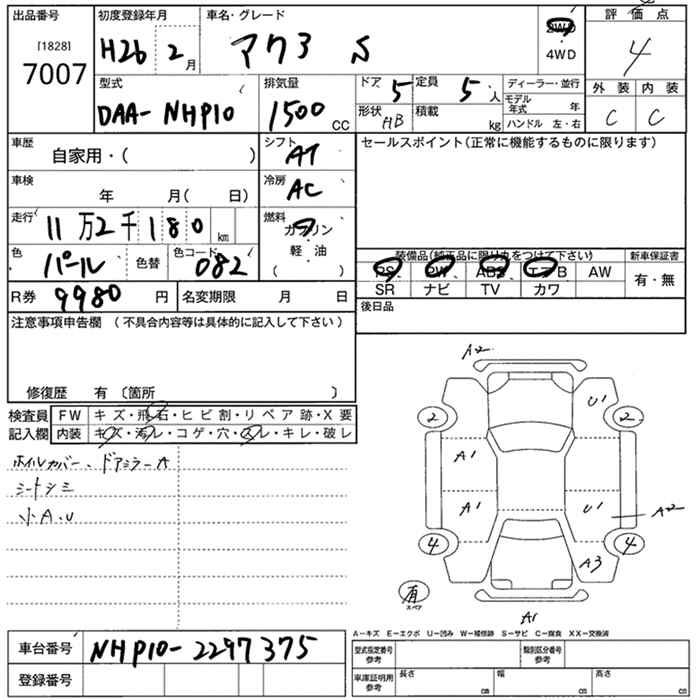 出品番号 初度登録年月 車名・グレード 2WD 評価点
[1828] H26 2月 アクア S 4WD 4
7007
型式 排気量 ドア 5 定員 5人 ディーラー・並行 外装 内装
DAA-NHP10 1500 CC 形状 HB 積載 kg モデル年式 年 C C
ハンドル 左・右
車歴 自家用・( ) シフト AT セールスポイント(正常に機能するものに限ります)
車検 年 月( 日) 冷房 AC
走行 11万2千180 km 燃料 ガソリン
軽・油
( )
色 パール 色替 色コード 082 装備品(純正品に限り丸をつけて下さい) 新車保証書
PS PW ABS エアB AW 有・無
SR ナビ TV カワ
R券 9980 円 名変期限 月 日 後日品
注意事項申告欄 (不具合内容等は具体的に記入して下さい)
修復歴 有 〔箇所 〕
検査員 FW キズ・飛石・ヒビ割・リペア跡・X要
記入欄 内装 キズ・汚レ・コゲ・穴・スレ・キレ・破レ
ホイルカバー、ドアミラーA
シートシミ
小A.U
A2
2 U1 2
A1
A1 U1 A2
4 A3 4
有
スペア
A1
A-キズ E-エクボ U-凹み W-補修跡 S-サビ C-腐食 XX-交換済
車台番号 NHP10-2297375
登録番号
型式指定番号 参考 類別区分番号 参考
車庫証明用 参考 長さ cm 幅 cm 高さ cm